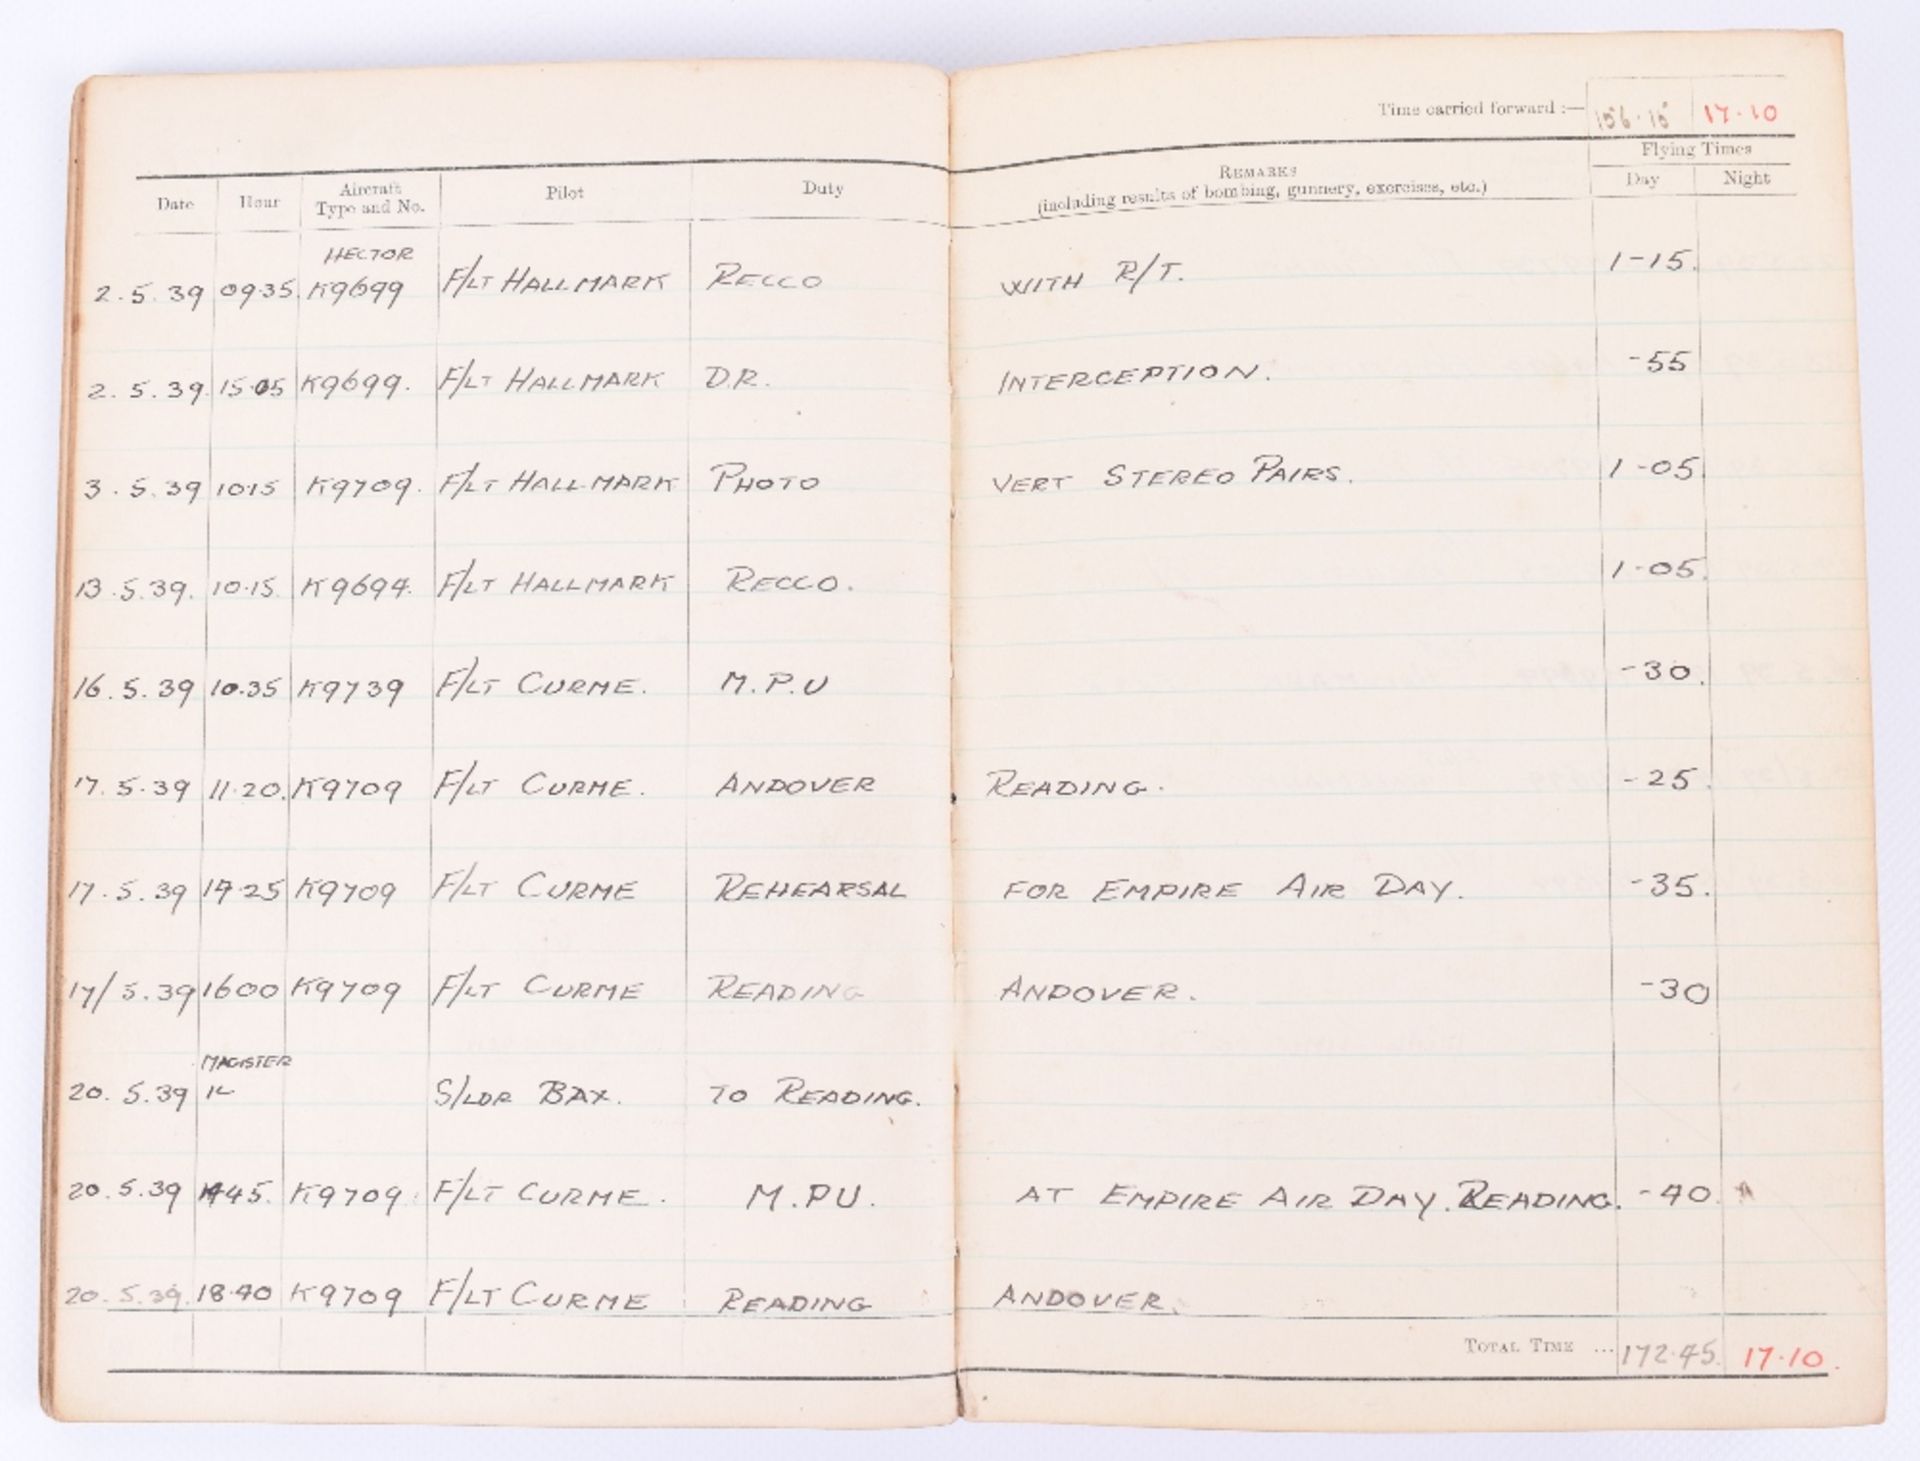 Time carried forward :— 156.15 17.10
Date Hour Aircraft Type and No. Pilot Duty REMARKS (including results of bombing, gunnery, exercises, etc.) Flying Times Day Night
HECTOR
2.5.39 09.35 K9699 F/LT HALLMARK RECCO WITH R/T. 1-15.
2.5.39 15.05 K9699. F/LT HALLMARK D.R. INTERCEPTION. -55
3.5.39 10.15 K9709. F/LT HALLMARK PHOTO VERT STEREO PAIRS. 1-05
13.5.39. 10.15 K9694. F/LT HALLMARK RECCO. 1-05.
16.5.39 10.35 K9739 F/LT CURME. M.P.U -30.
17.5.39 11.20. K9709 F/LT CURME. ANDOVER READING. -25.
17.5.39 14.25 K9709 F/LT CURME REHEARSAL FOR EMPIRE AIR DAY. -35.
17/5.39 1600 K9709 F/LT CURME READING ANDOVER. -30
MAGISTER
20.5.39 S/LDR BAX. TO READING.
20.5.39 1445. K9709 F/LT CURME. M.PU. AT EMPIRE AIR DAY. READING. -40.
20.5.39. 18.40 K9709 F/LT CURME READING ANDOVER.
TOTAL TIME ... 172.45. 17.10.